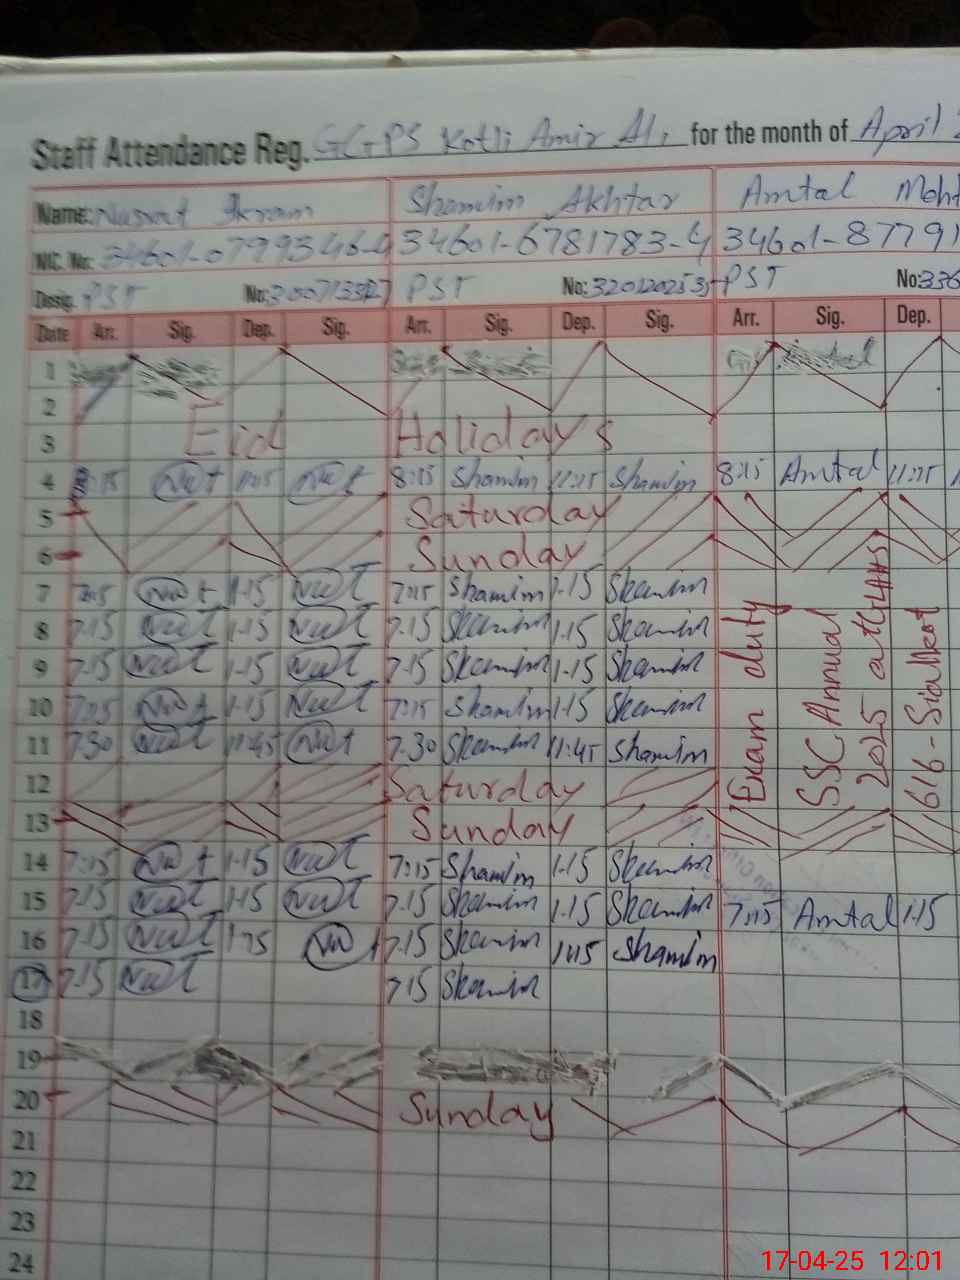 Staff Attendance Reg. GGPS Kotli Amir Ali for the month of April
Name: Nusrat Ikram Shamim Akhtar Amtal
NIC. No: 34601-0799346-4 34601-6781783-4 34601-87791
Desig. PST No: PST No: PST No: 336
Date Arr. Sig. Dep. Sig. Arr. Sig. Dep. Sig. Arr. Sig. Dep.
1
2
3 Eid Holidays
4 8:15 Shamim 11:15 Shamim 8:15 Amtal 11:15
5 Saturday
6 Sunday
7 7:15 1:15 7:15 Shamim 1:15 Shamim
8 7:15 1:15 7:15 Shamim 1:15 Shamim
9 7:15 1:15 7:15 Shamim 1:15 Shamim
10 7:15 1:15 7:15 Shamim 1:15 Shamim
11 7:30 11:45 7:30 Shamim 11:45 Shamim
Exam duty
SSC Annual
2025 at GGHS
616-Sialkot
12 Saturday
13 Sunday
14 7:15 1:15 7:15 Shamim 1:15 Shamim
15 7:15 1:15 7:15 Shamim 1:15 Shamim 7:15 Amtal 1:15
16 7:15 1:15 7:15 Shamim 1:15 Shamim
17 7:15 7:15 Shamim
18
19
20 Sunday
21
22
23
24
17-04-25 12:01